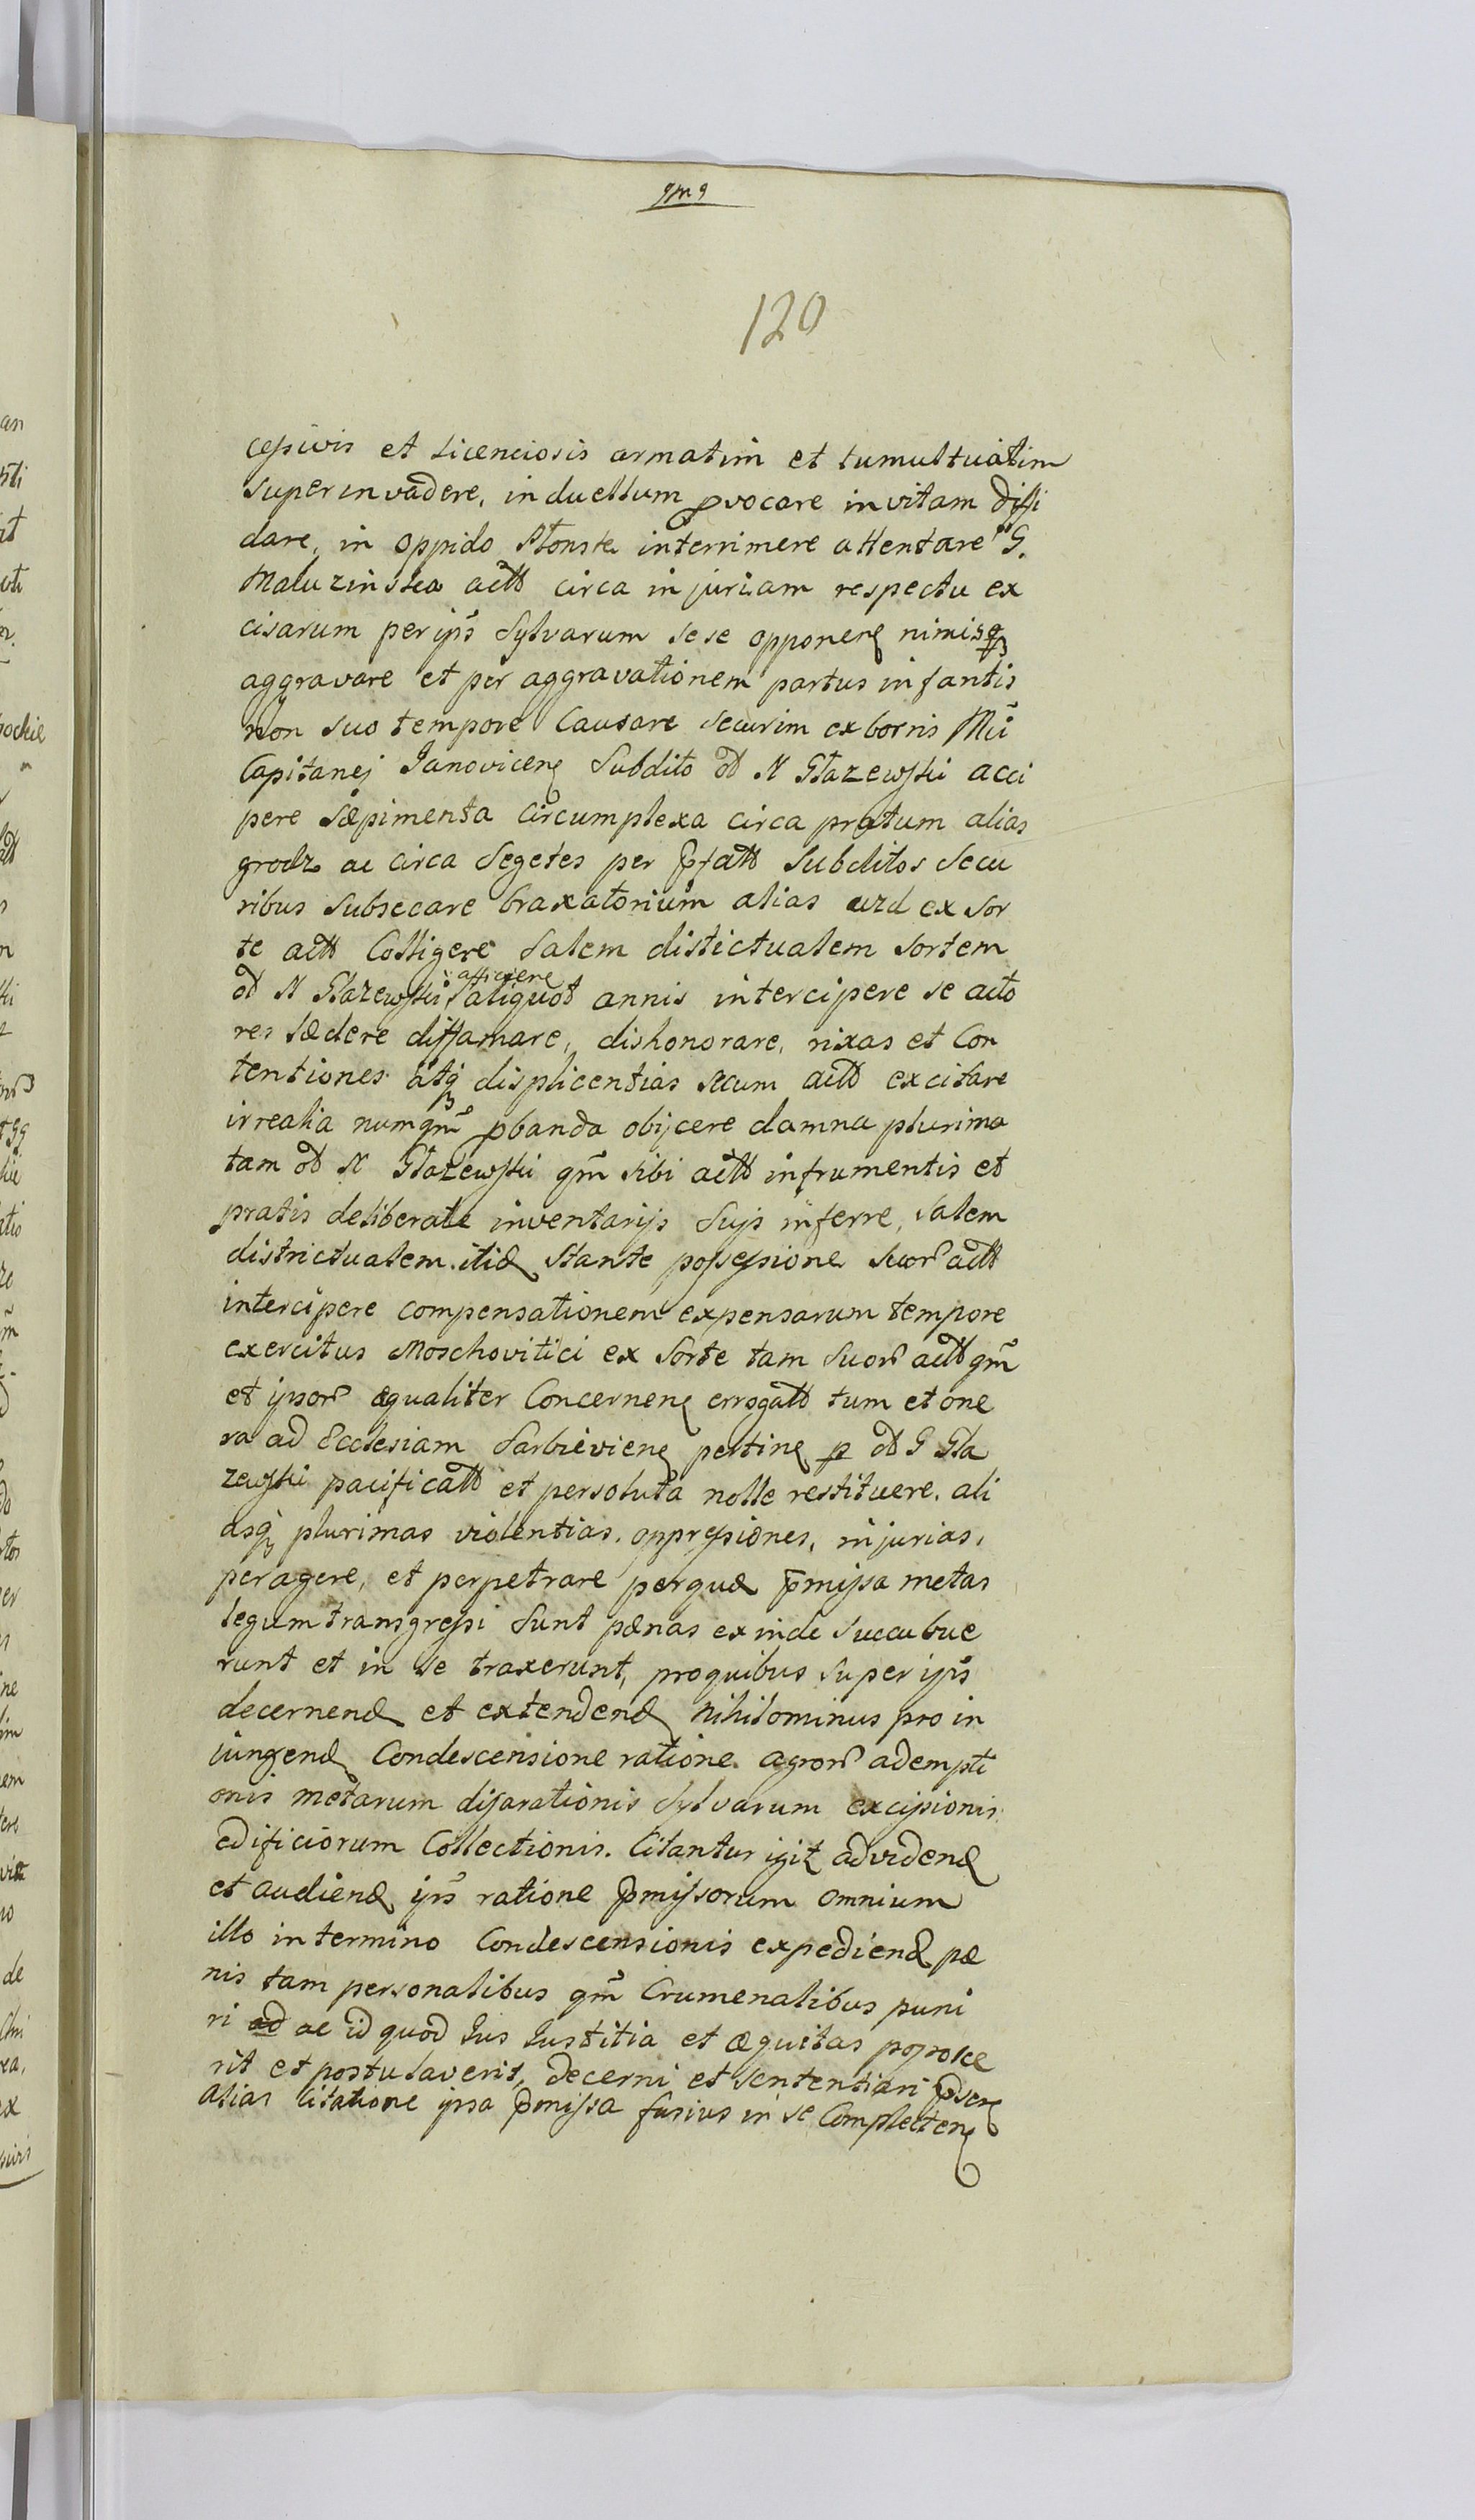 120
cessivis et licenciosis armatim et tumultuatim
superinvadere, in duellum pvocare in vitam diffi
dare, in oppido Płonsk interrimere attentare G.
Maluzinska actt circa injuriam respectu ex
cisarum per ips̄ Sylvarum sese opponen nimisq
aggravare et per aggravationem partus infantis
non suo tempore Causare securim ex borris Mci
Capitanej Janovicen Subdito olt N Głazewski acci
pere sæpimenta circumplexa circa pratum alias
grodz ac circa Segetes per pfatt Subditos Secu
ribus Subsecare braxatorium alias ex sor
te actt Colligere Salem distictualem sortem
olt N Głazewski afficiere aliquot annis intercipere se acto
res lædere diffamare, dishonorare, rixas et Con
tentiones atq displicentias secum actt excitare
irrealia numqm̄ pbanda obijcere damna plurima
tam olt N Głazewski qm̄ sibi actt in frumentis et
pratis deliberate inventarijs Sujs inferre, Salem
districtualem itid Stante possessione suor actt
intercipere compensationem expensarum tempore
exercitus Moschovitici ex Sorte tam Suor actt qm̄
et ipsor æqualiter Concernen errogatt tum et one
ra ad Ecclesiam Sarbievien pertinen p olt G Gła
zewski pacificatt et persoluta nolle restituere. ali
asq plurimas violentias. oppressiones, injurias,
peragere, et perpetrare per quæ pmissa metas
legum transgressi Sunt pænas exinde Succubue
runt et in se traxerunt, pro quibus super ips̄
decernend et extendend nihilominus pro in
iungend Condescensione ratione agror adempti
onis metarum disparationis Sylvarum excisionis
ædificiorum Collectionis. Citantur igit ad vidend
et audiend ips̄ ratione pmissorum omnium
illo in termino Condescensionis expediend pæ
nis tam personalibus qm̄ Crumenalibus puni
ri ad ac id quod Jus Justitia et æquitas poposce
rit et postulaverit, decerni et sententiari psen
alias Citatione ipsa pmissa fusius in se Complecten